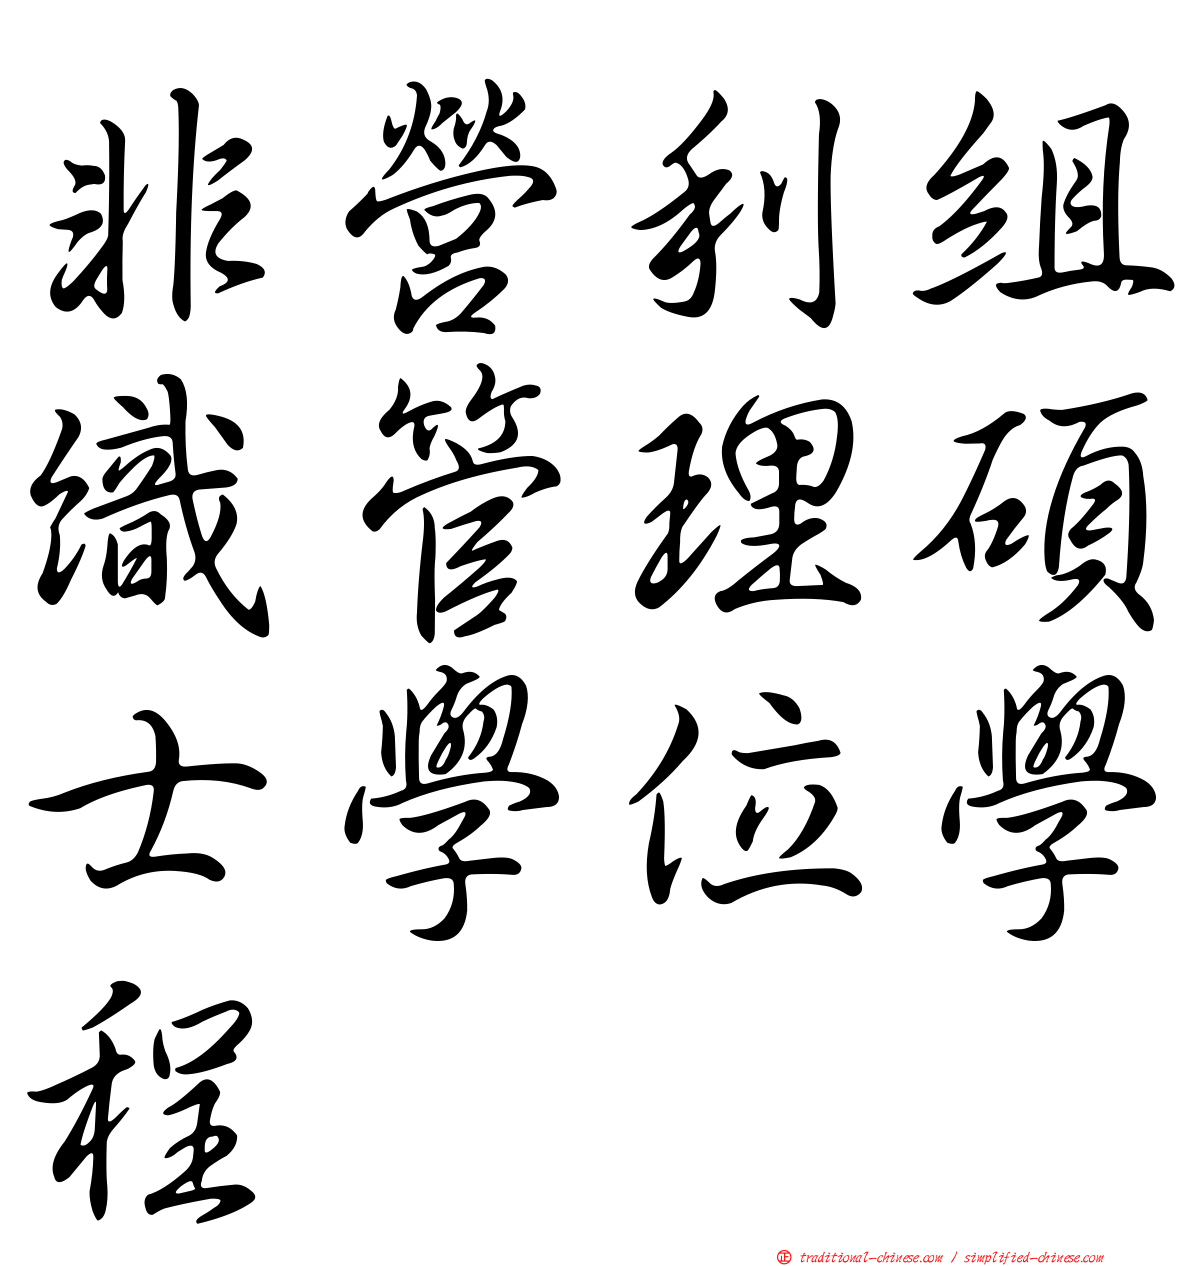 非營利組
織管理碩
士學位學
程
正 traditional-chinese.com / simplified-chinese.com